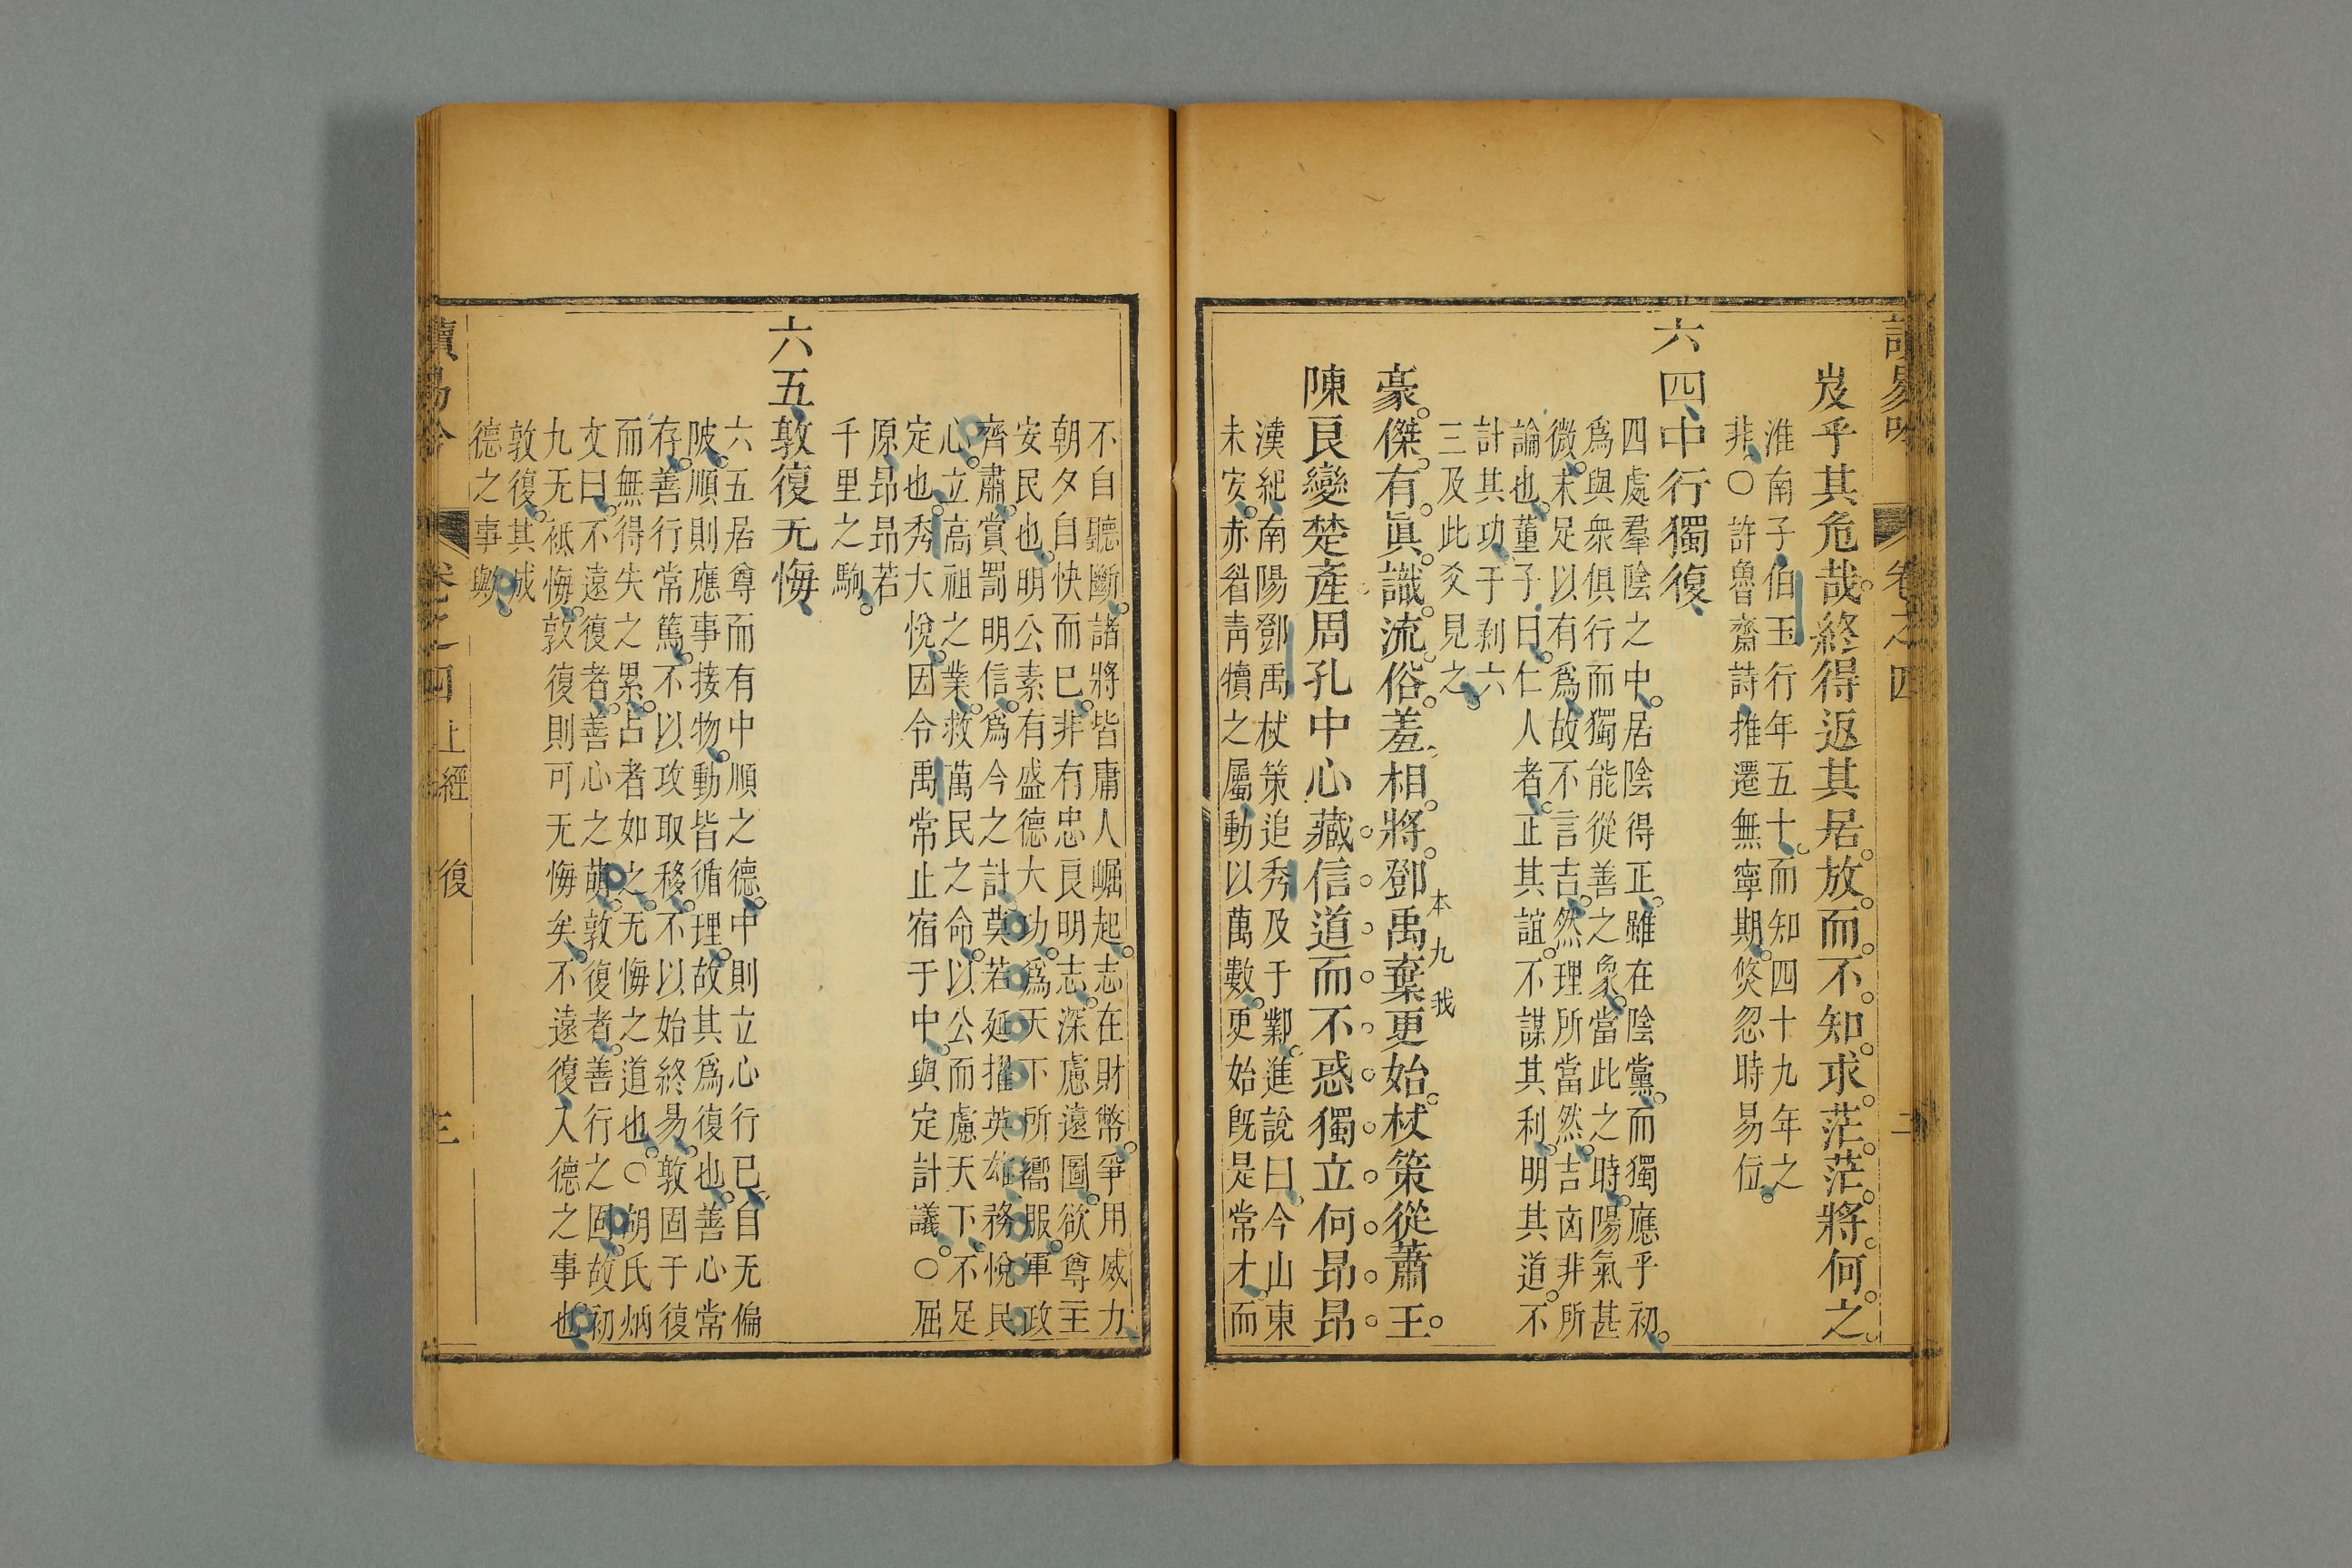 讀易吟 卷之四 二
岌乎其危哉終得返其居放而不知求茫茫將何之
淮南子伯玉行年五十而知四十九年之
非〇許魯齋詩推遷無寧期倐忽時易位
六四中行獨復
四處羣陰之中居陰得正雖在陰黨而獨應乎初
爲與衆俱行而獨能從善之象當此之時陽氣甚
微未足以有爲故不言吉然理所當然吉凶非所
論也董子曰仁人者正其誼不謀其利明其道不
計其功于剥六
三及此爻見之
本九我
豪傑有眞識流俗羞相將鄧禹棄更始杖策從蕭王
陳良變楚產周孔中心藏信道而不惑獨立何昂昂
漢紀南陽鄧禹杖策追秀及于鄴進說曰今山東
未安赤眉靑犢之屬動以萬數更始旣是常才而
不自聽斷諸將皆庸人崛起志在財幣爭用威力
朝夕自快而已非有忠良明志深慮遠圖欲尊主
安民也明公素有盛德大功爲天下所嚮服軍政
齊肅賞罰明信爲今之計莫若延攬英雄務悅民
心立高祖之業救萬民之命以公而慮天下不足
定也秀大悅因令禹常止宿于中與定計議〇屈
原昂昂若
千里之駒
六五敦復无悔
六五居尊而有中順之德中則立心行已自无偏
陂順則應事接物動皆循理故其爲復也善心常
存善行常篤不以攻取移不以始終易敦固于復
而無得失之累占者如之无悔之道也〇胡氏炳
文曰不遠復者善心之萌敦復者善行之固故初
九无祗悔敦復則可无悔矣不遠復入德之事也
敦復其成
德之事歟
讀易吟 卷之四 上經 復 三